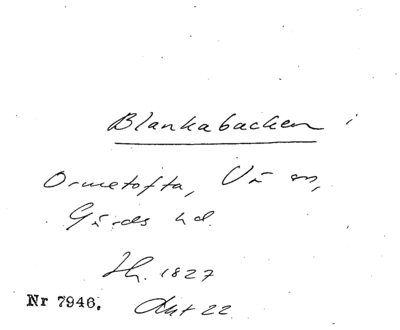 Blankabacken i
Ormetofta, Vä sn,
Gärds hd.
Sh. 1827
Nr 7946. Akt 22